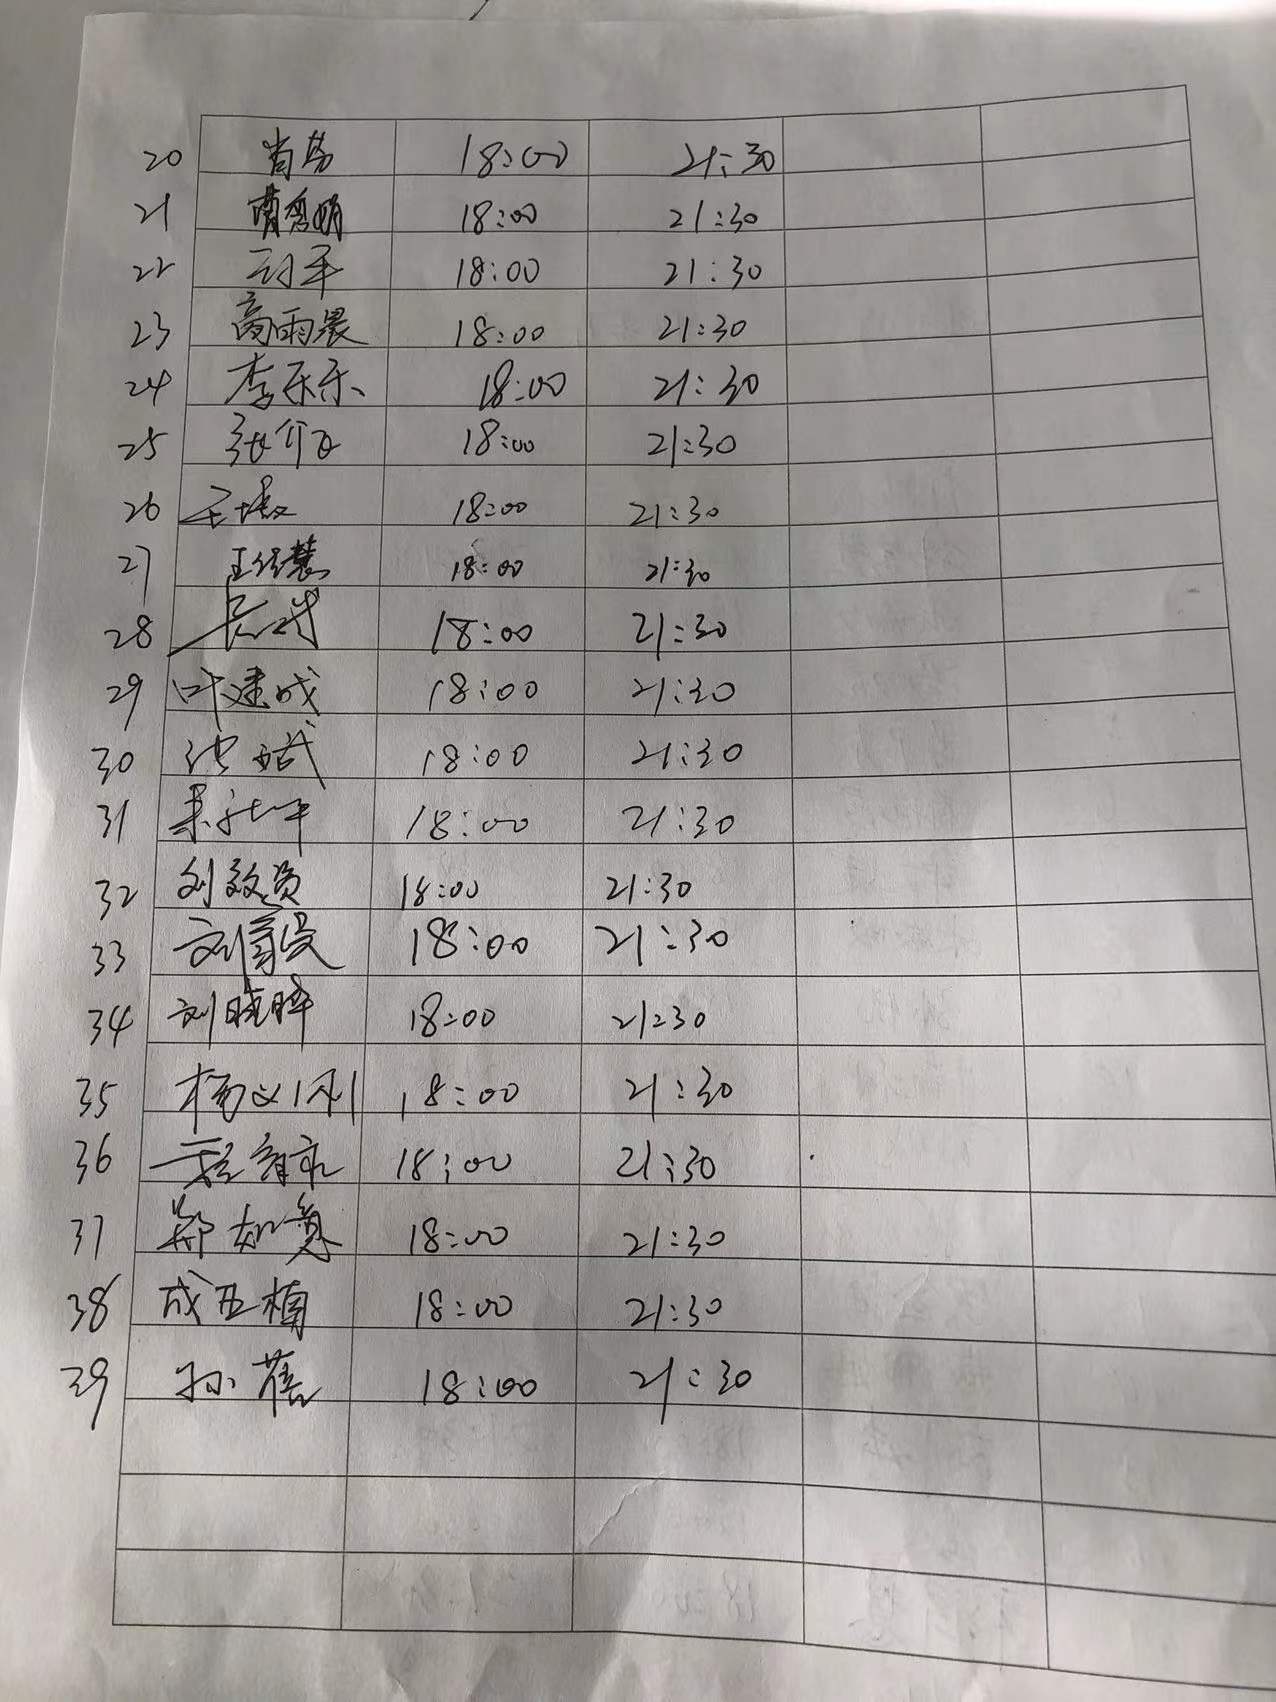 20 肖 18:00 21:30
21 18:00 21:30
22 平 18:00 21:30
23 高雨晨 18:00 21:30
24 李乐乐 18:00 21:30
25 张 18:00 21:30
26 王 18:00 21:30
27 王 慧 18:00 21:30
28 18:00 21:30
29 叶建成 18:00 21:30
30 18:00 21:30
31 18:00 21:30
32 刘 18:00 21:30
33 刘 18:00 21:30
34 刘晓晖 18:00 21:30
35 杨义刚 18:00 21:30
36 18:00 21:30
37 郑如 18:00 21:30
38 成亚楠 18:00 21:30
39 孙蓓 18:00 21:30